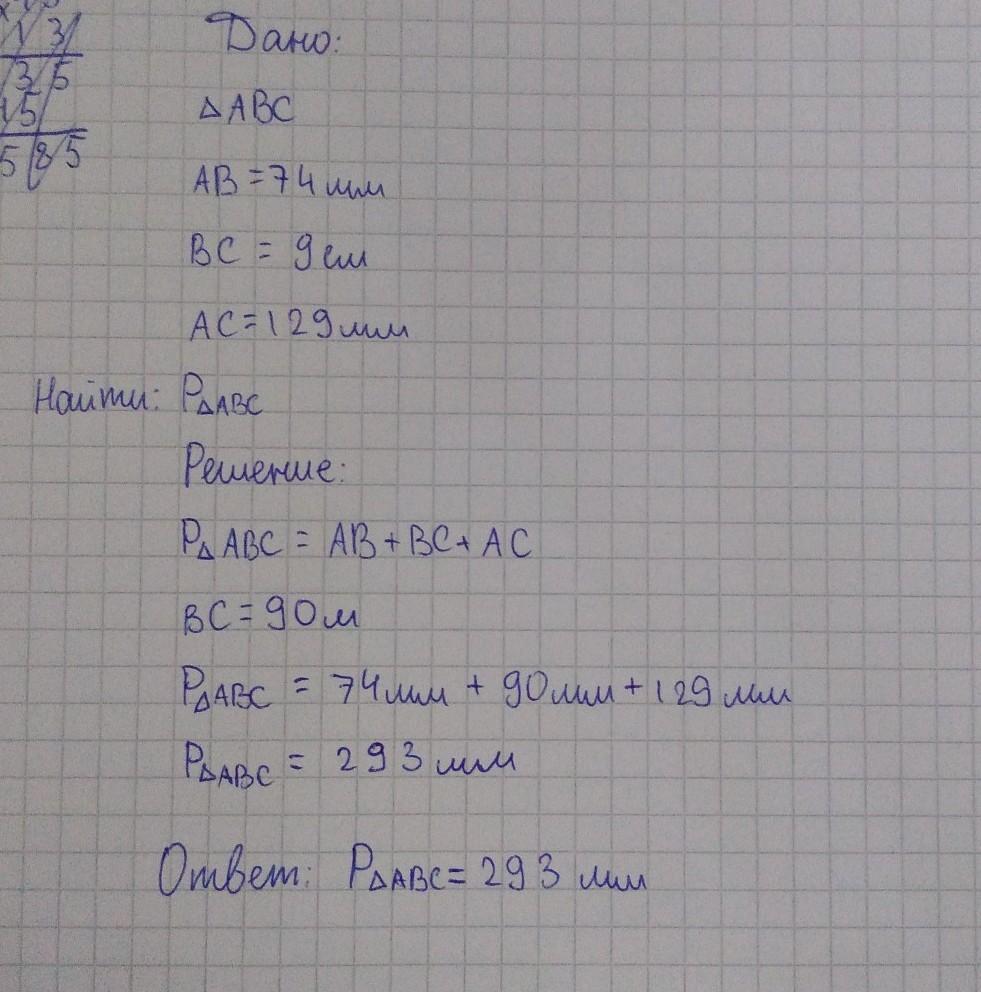 Дано:
△ABC
AB = 74 мм
BC = 9 см
AC = 129 мм
Найти: P△ABC
Решение:
P△ABC = AB + BC + AC
BC = 90 м
P△ABC = 74 мм + 90 мм + 129 мм
P△ABC = 293 мм
Ответ: P△ABC = 293 мм